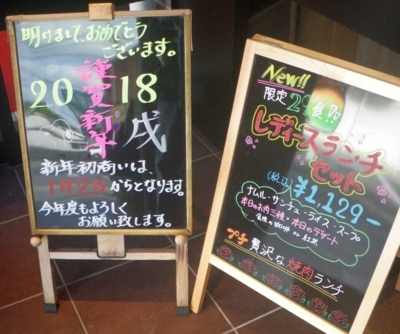 明けまして、おめでとう
ございます。
2018
謹賀新年
戌
新年初商いは、
1月2日からとなります。
今年度もよろしく
お願い致します。
New!!
限定 2 食!!
レディースランチ
セット
(税込) ¥1,129-
ナムル・サンチュ・ライス・スープ
本日のお肉三種・本日のデザート
プチ贅沢な焼肉ランチ